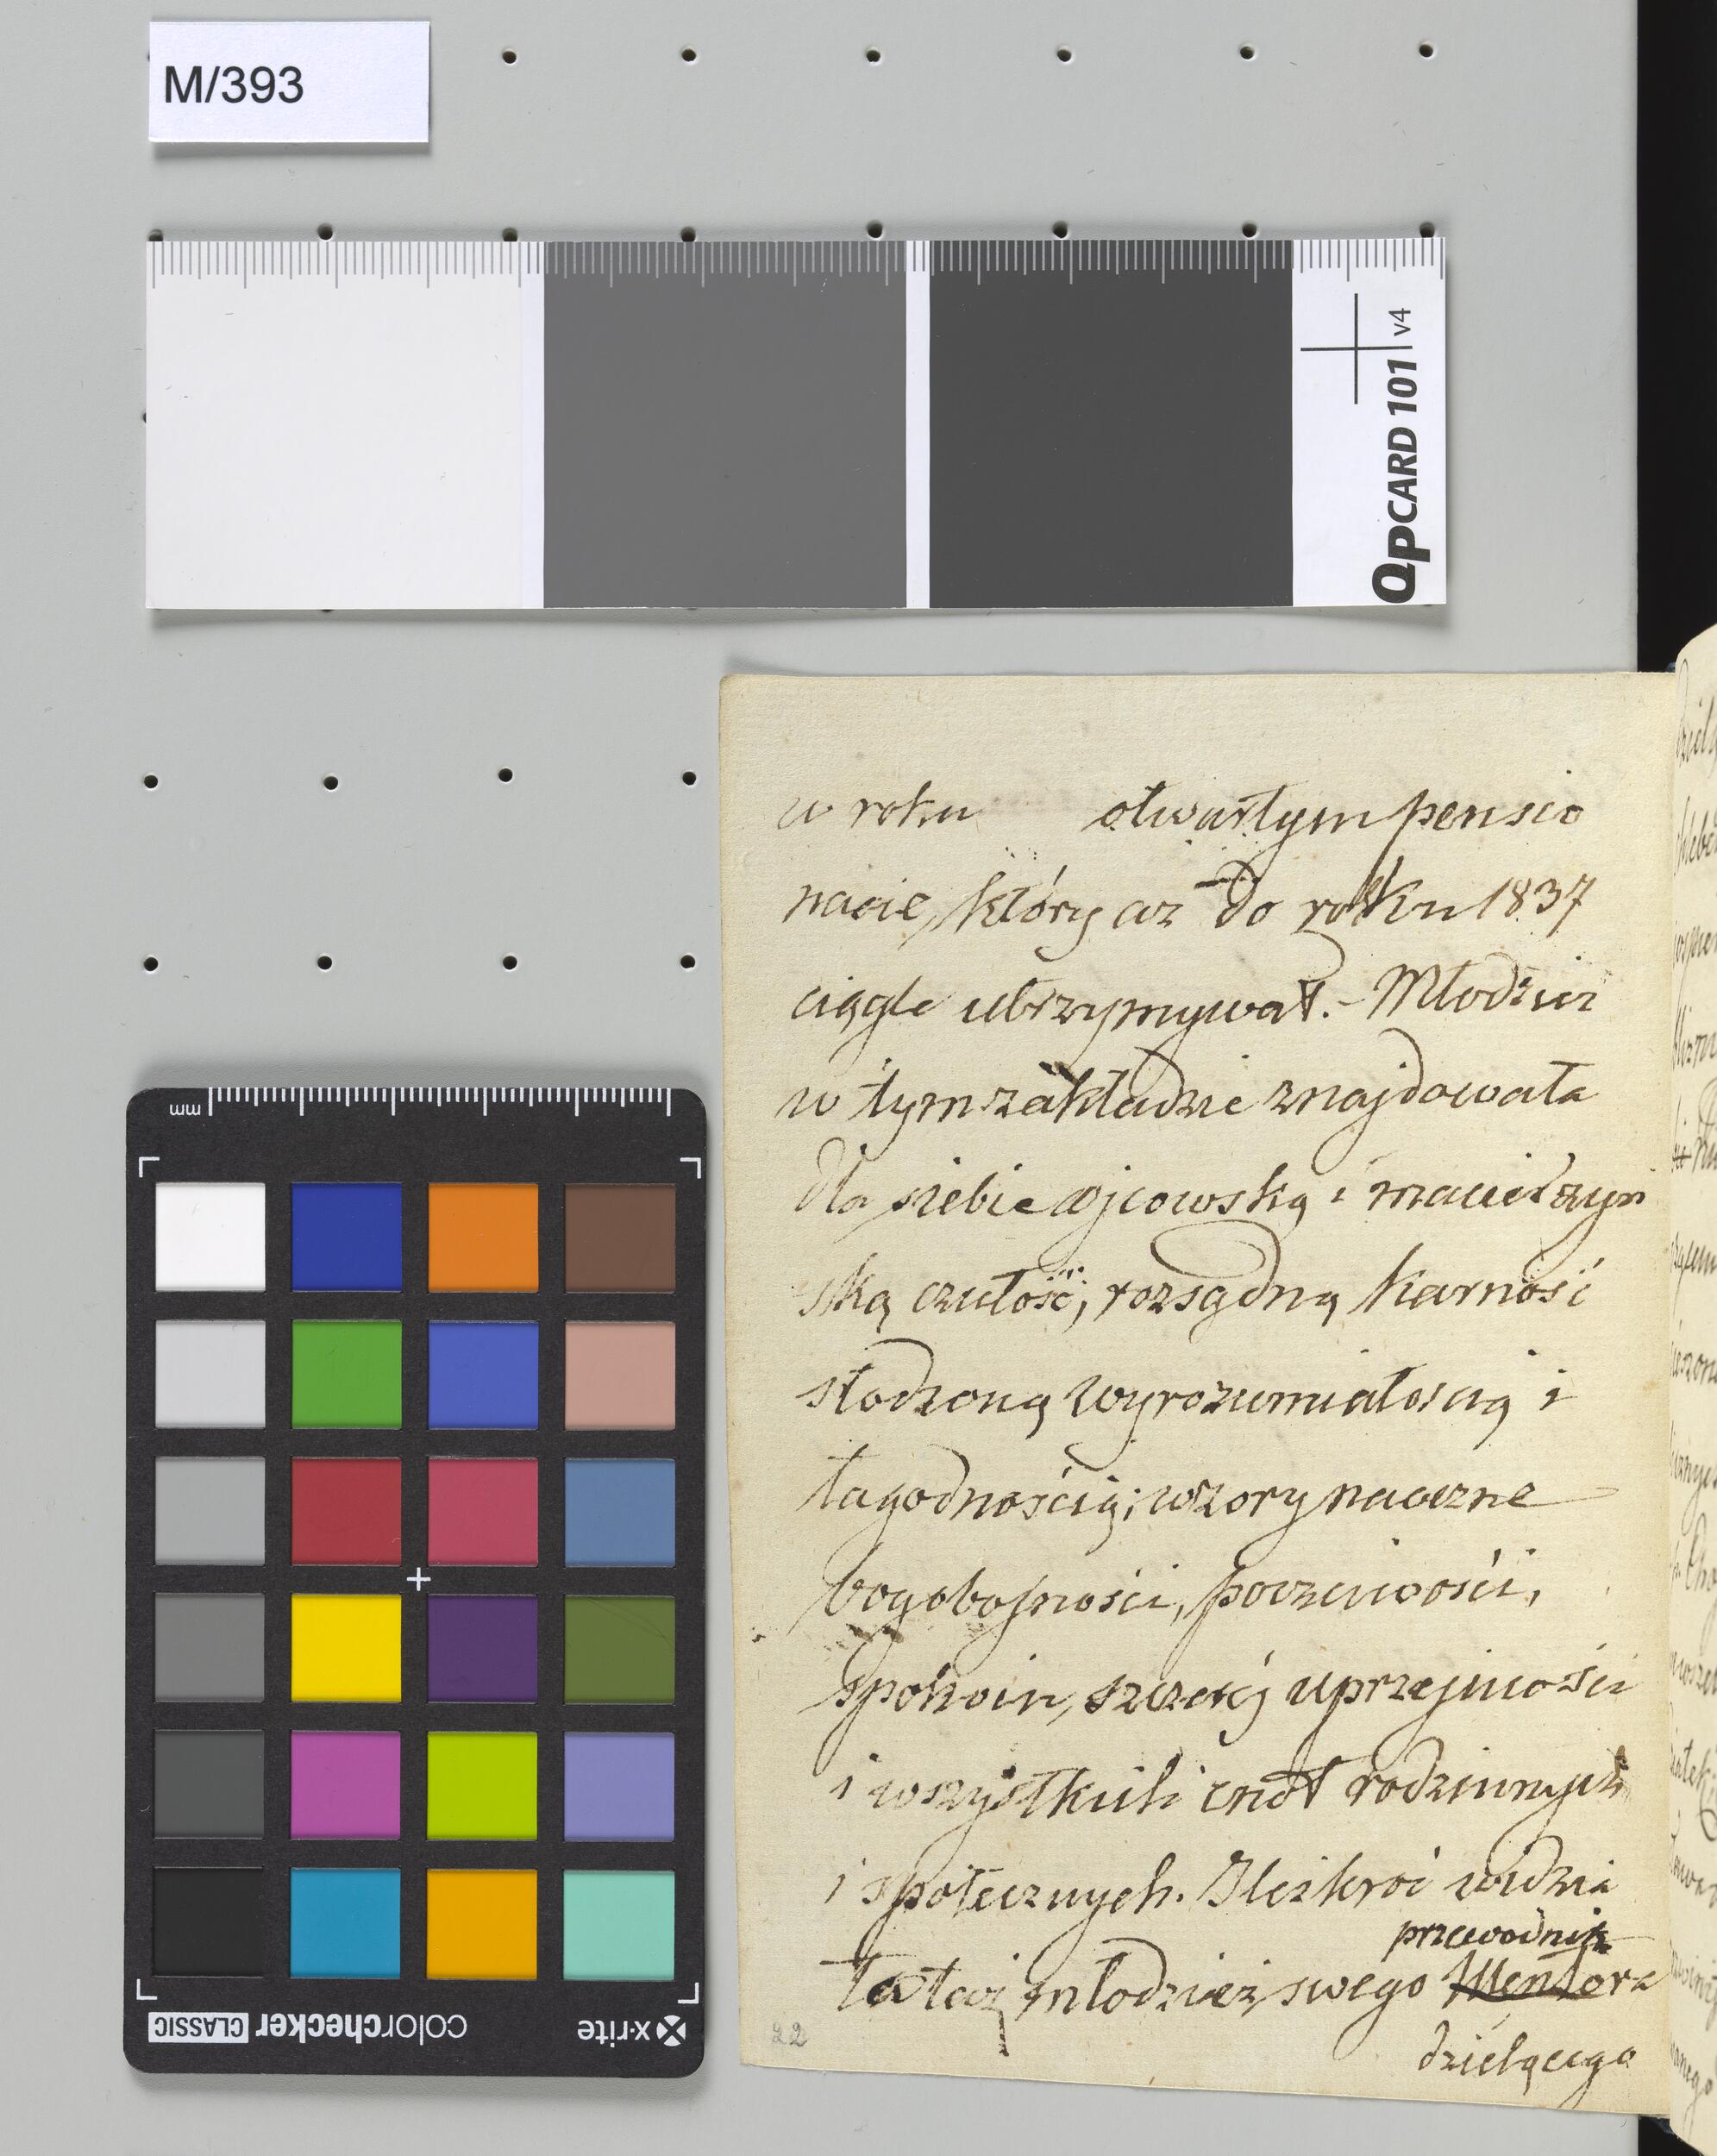 M/393
QPCARD 101 v4
mm
x-rite colorchecker CLASSIC
w roku otwartym pensio
nacie, który aż do roku 1837
ciągle utrzymywał. - Młodzież
w tym zakładzie znajdowała
dla siebie ojcowską i macierzyń
ską czułość, rozsądną karność
słodzoną wyrozumiałoscią i
łagodnością; wzory naoczne
bogobojności, poczciwości,
spokoiu, szczeréj uprzejmości
i wszystkich cnót rodzinnych
i społecznych. Ileżkroć widzia
przewodnik
ła taż młodzież swego Mentora
dzielącego
22